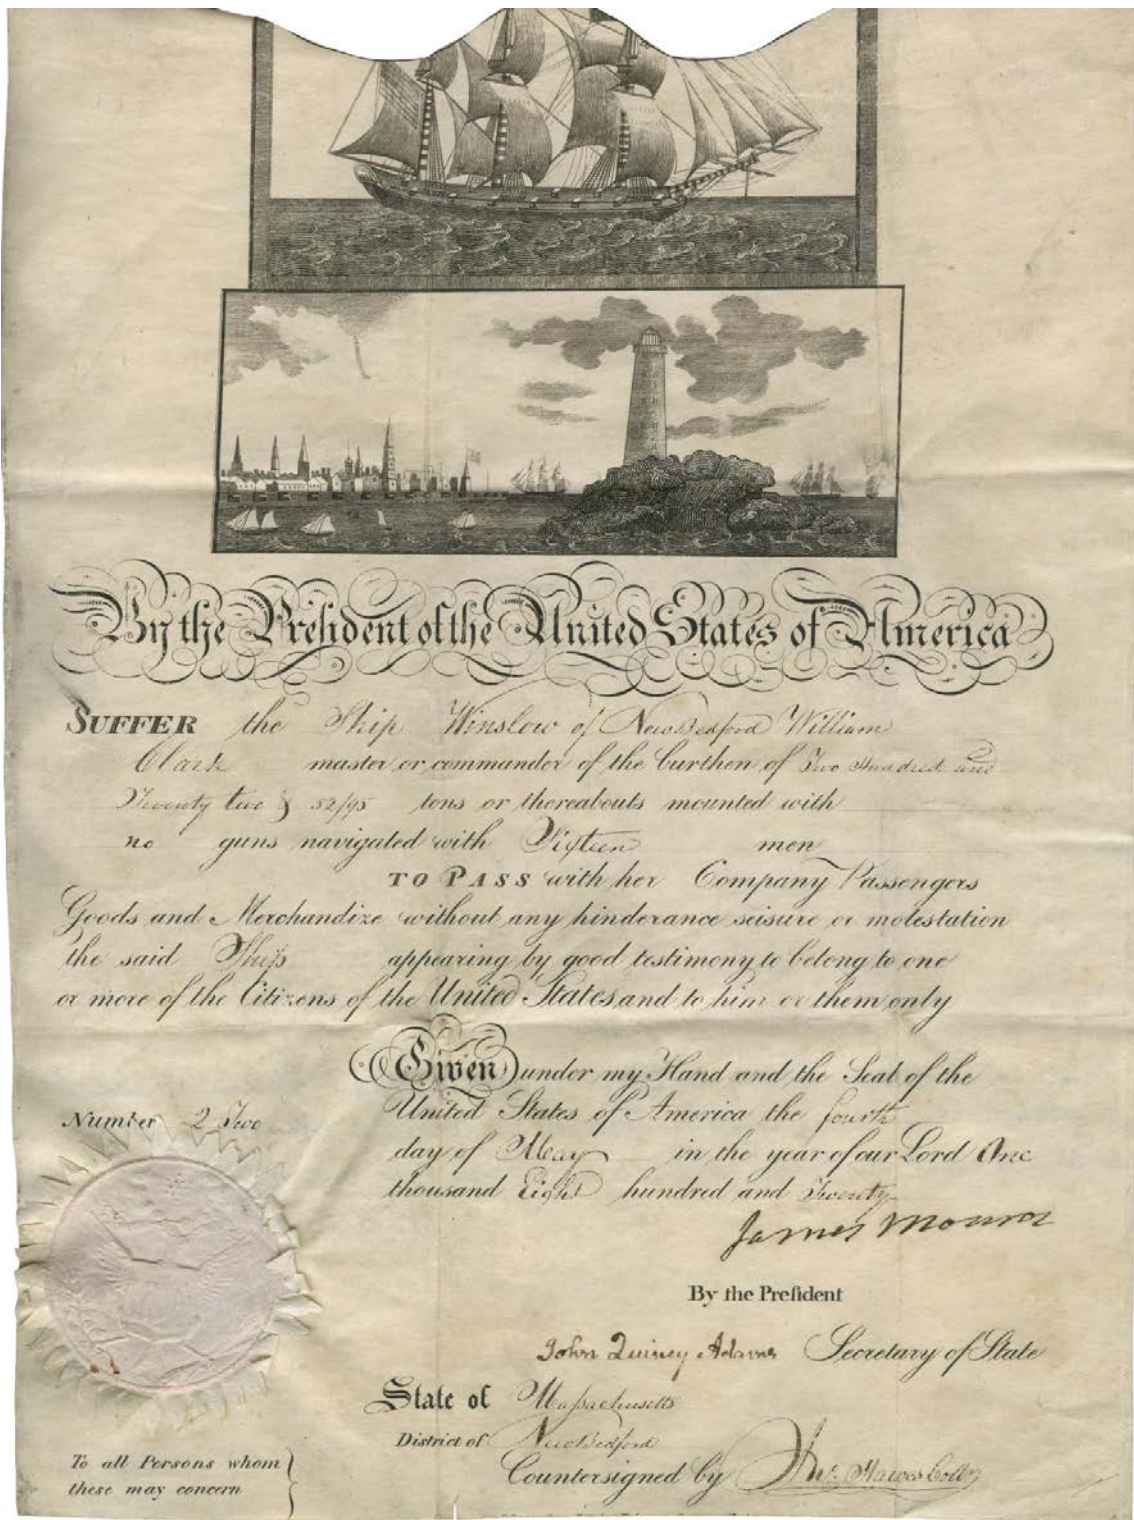 By the President of the United States of America
SUFFER the Ship Winslow of New Bedford William
Clark master or commander of the burthen of Two Hundred and
Twenty two & 52/95 tons or thereabouts mounted with
no guns navigated with Fifteen men
TO PASS with her Company Passengers
Goods and Merchandize without any hinderance seisure or molestation
the said Ship appearing by good testimony to belong to one
or more of the Citizens of the United States and to him or them only
Given under my Hand and the Seal of the
United States of America the fourth
day of May in the year of our Lord One
thousand Eight hundred and Twenty
Number 2 Two
James Monroe
By the President
John Quincy Adams Secretary of State
State of Massachusetts
District of New Bedford
Countersigned by Jno. Hawes Collr
To all Persons whom
these may concern